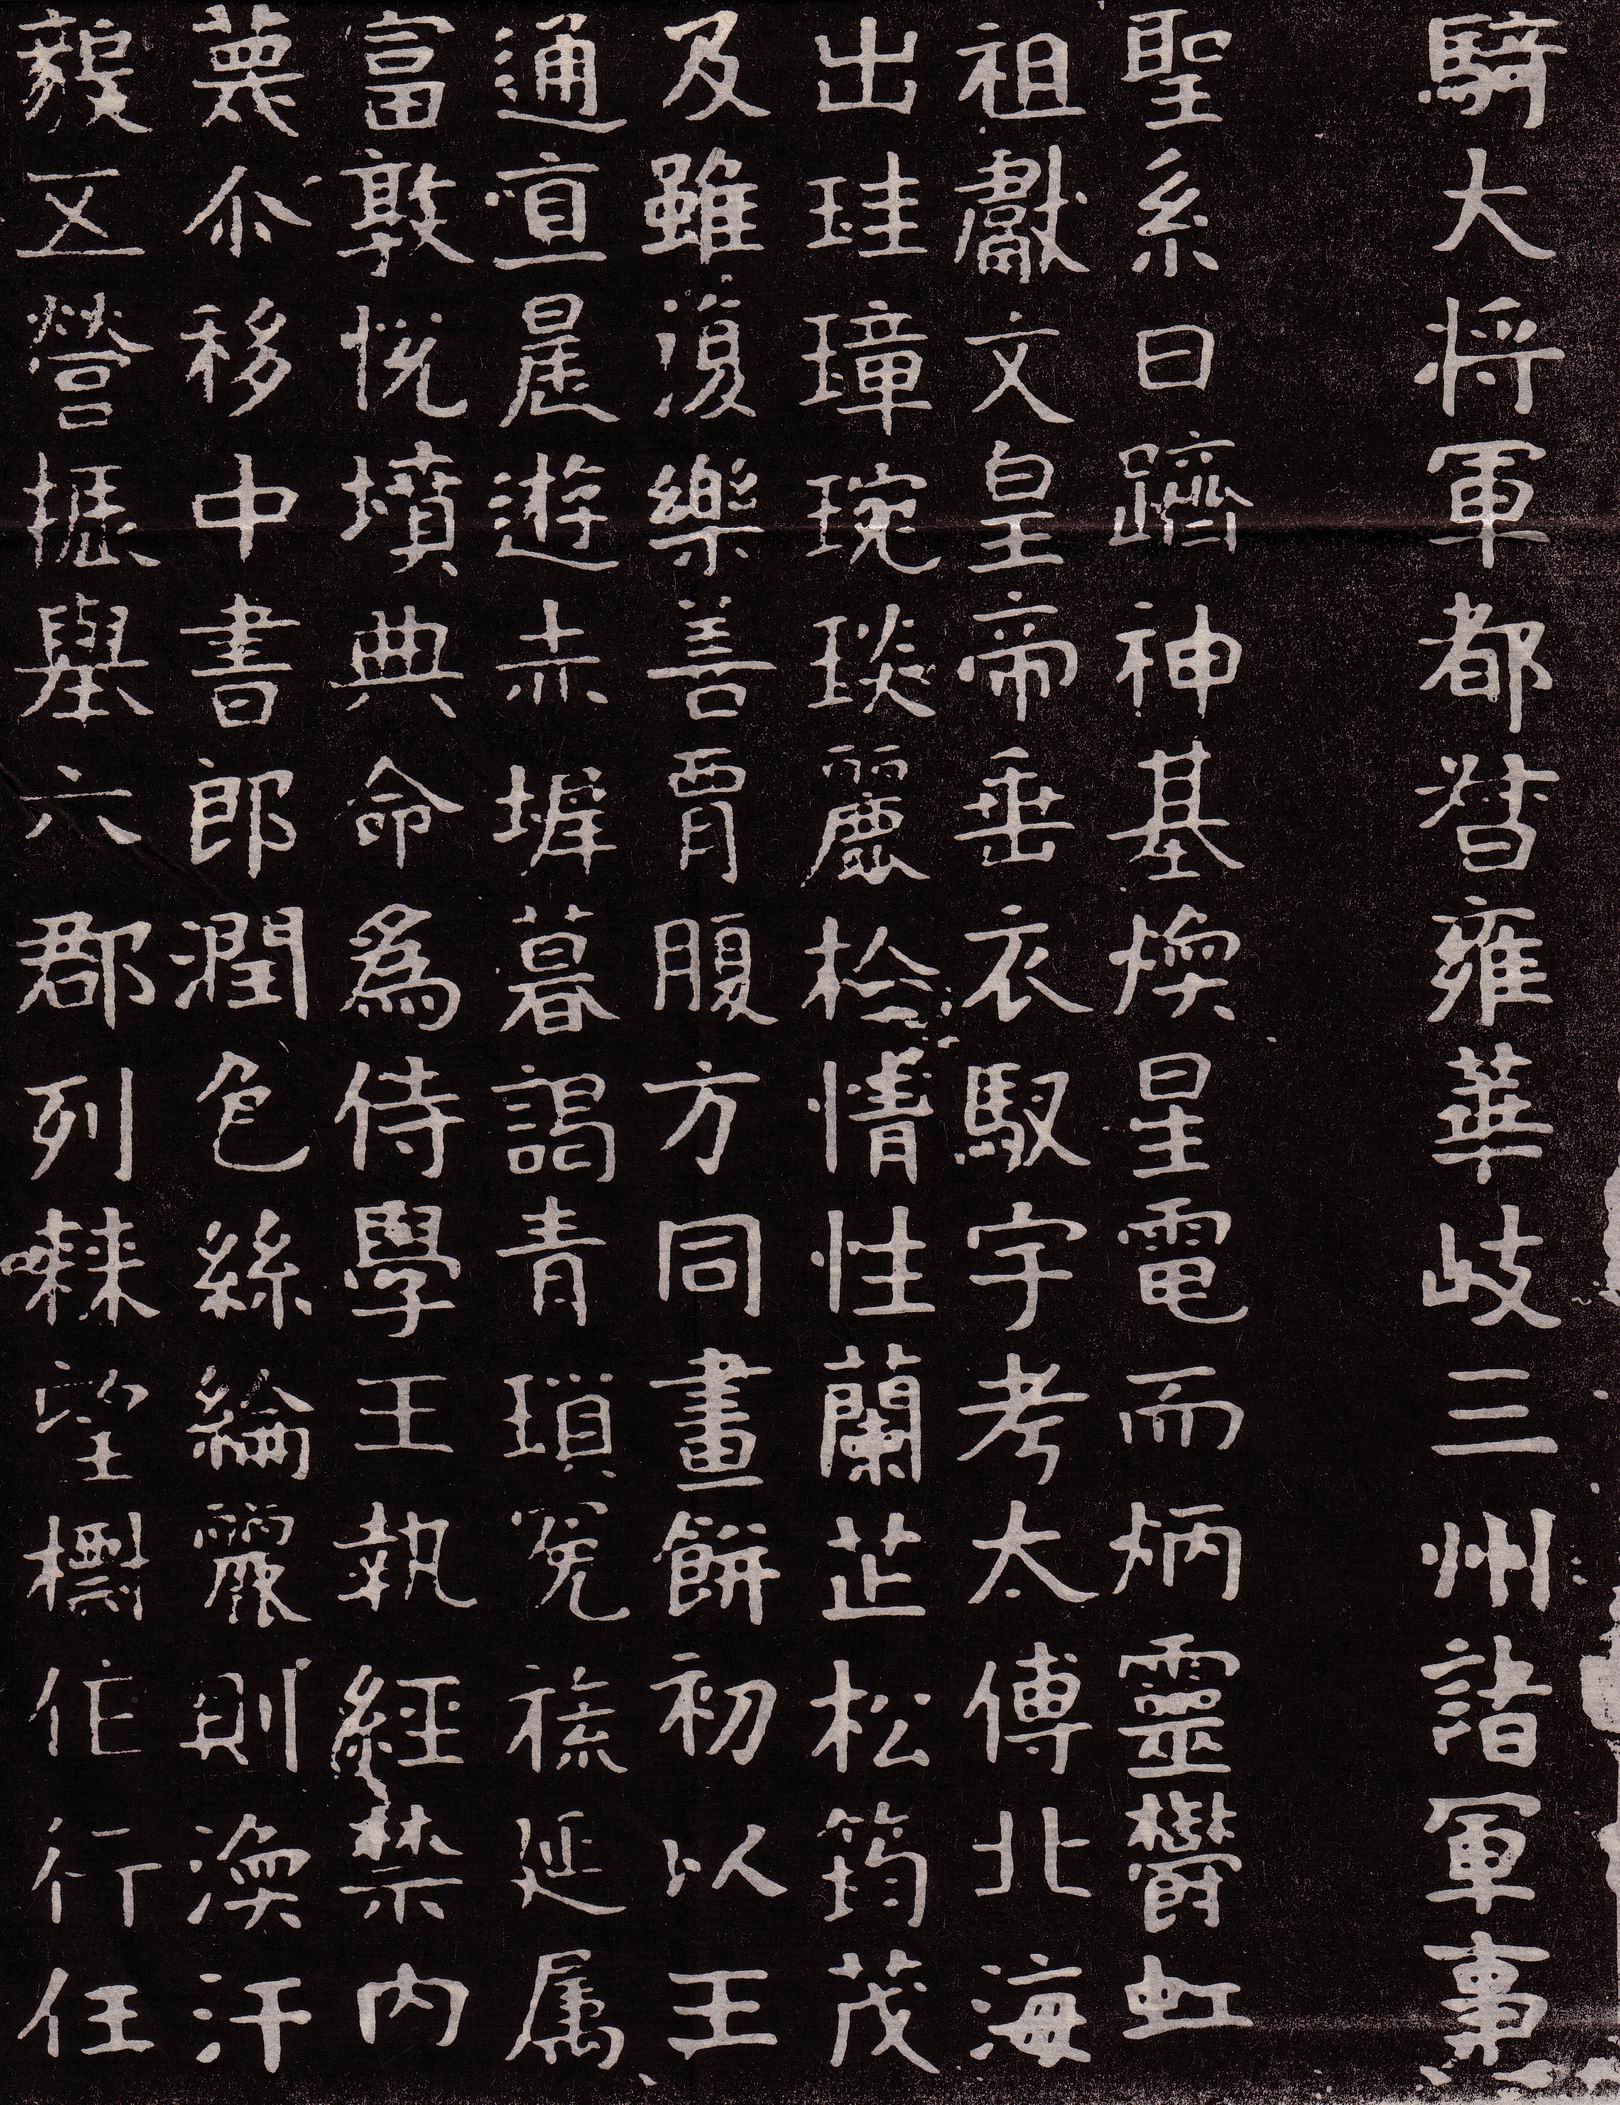 騎大将軍都督雍華歧三州諸軍事
聖系曰躋神基煥星電而炳靈欝虹
祖獻文皇帝垂衣馭宇考太傅北海
出珪璋琬琰麗於情性蘭芷松筠茂
及雖復樂善胃腹方同畫餅初以王
通直晨遊赤墀暮謁青瑣冕旒延属
富敦悦墳典命為侍學王執經禁内
蕤尒移中書郎潤色絲綸麗則渙汗
藂五營振舉六郡列棘望櫩作行任